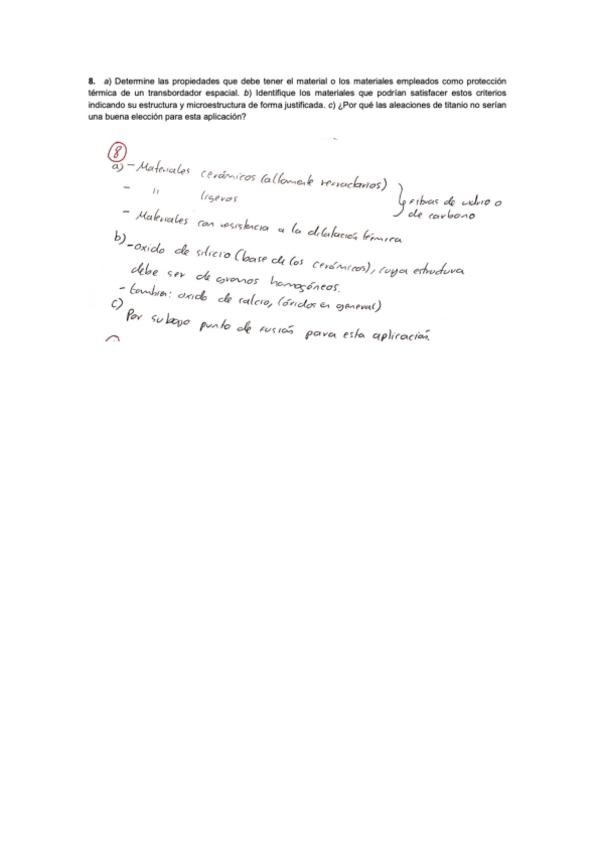 8. a) Determine las propiedades que debe tener el material o los materiales empleados como protección
térmica de un transbordador espacial. b) Identifique los materiales que podrían satisfacer estos criterios
indicando su estructura y microestructura de forma justificada. c) ¿Por qué las aleaciones de titanio no serían
una buena elección para esta aplicación?
8
a) - Materiales cerámicos (altamente refractarios)
- " ligeros
- Materiales con resistencia a la dilatación térmica
fibras de vidrio o
de carbono
b) - oxido de silicio (base de los cerámicos), cuya estructura
debe ser de granos homogéneos.
- tambien: oxido de calcio, (óxidos en general)
c) Por su bajo punto de fusión para esta aplicación.